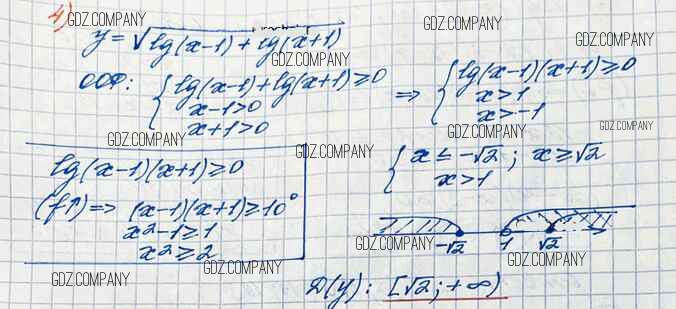 4)
GDZ.COMPANY
GDZ.COMPANY
y = √lg(x-1) + lg(x+1)
GDZ.COMPANY
ООФ: { lg(x-1) + lg(x+1) ≥ 0
x-1 > 0
x+1 > 0
⇒ { lg(x-1)(x+1) ≥ 0
x > 1
x > -1
GDZ.COMPANY
GDZ.COMPANY
GDZ.COMPANY
GDZ.COMPANY
GDZ.COMPANY
GDZ.COMPANY
lg(x-1)(x+1) ≥ 0
(f↑) => (x-1)(x+1) ≥ 10⁰
x² - 1 ≥ 1
x² ≥ 2
{ x ≤ -√2 ; x ≥ √2
x > 1
GDZ.COMPANY
-√2 1 √2
GDZ.COMPANY
GDZ.COMPANY
GDZ.COMPANY
D(y): [√2; +∞)